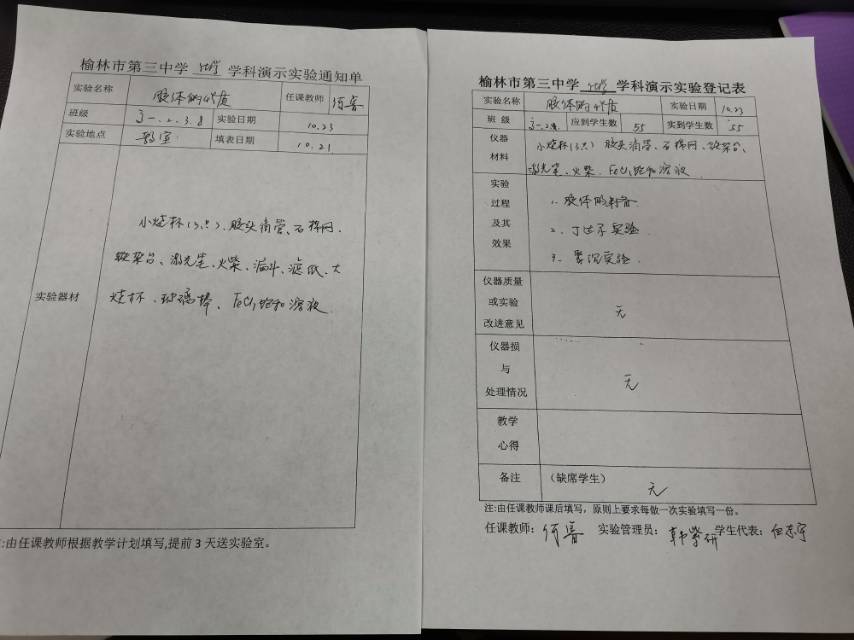 榆林市第三中学 化学 学科演示实验通知单
实验名称 胶体的性质 任课教师 何喜
班级 高一.2.3.8 实验日期 10.23
实验地点 教室 填表日期 10.21
实验器材
小烧杯(3只)、胶头滴管、石棉网、
铁架台、激光笔、火柴、漏斗、滤纸、大
烧杯、玻璃棒、FeCl3饱和溶液
注:由任课教师根据教学计划填写,提前 3 天送实验室。
榆林市第三中学 化学 学科演示实验登记表
实验名称 胶体的性质 实验日期 10.23
班 级 应到学生数 55 实到学生数 55
仪器材料
小烧杯(3只) 胶头滴管、石棉网、铁架台、
激光笔、火柴、FeCl3饱和溶液
实验过程及其效果
1. 胶体的制备
2. 丁达尔实验
3. 聚沉实验
仪器质量或实验改进意见 无
仪器损与处理情况 无
教学心得
备注 (缺席学生)
无
注:由任课教师课后填写,原则上要求每做一次实验填写一份。
任课教师: 实验管理员: 韩紫研 学生代表: